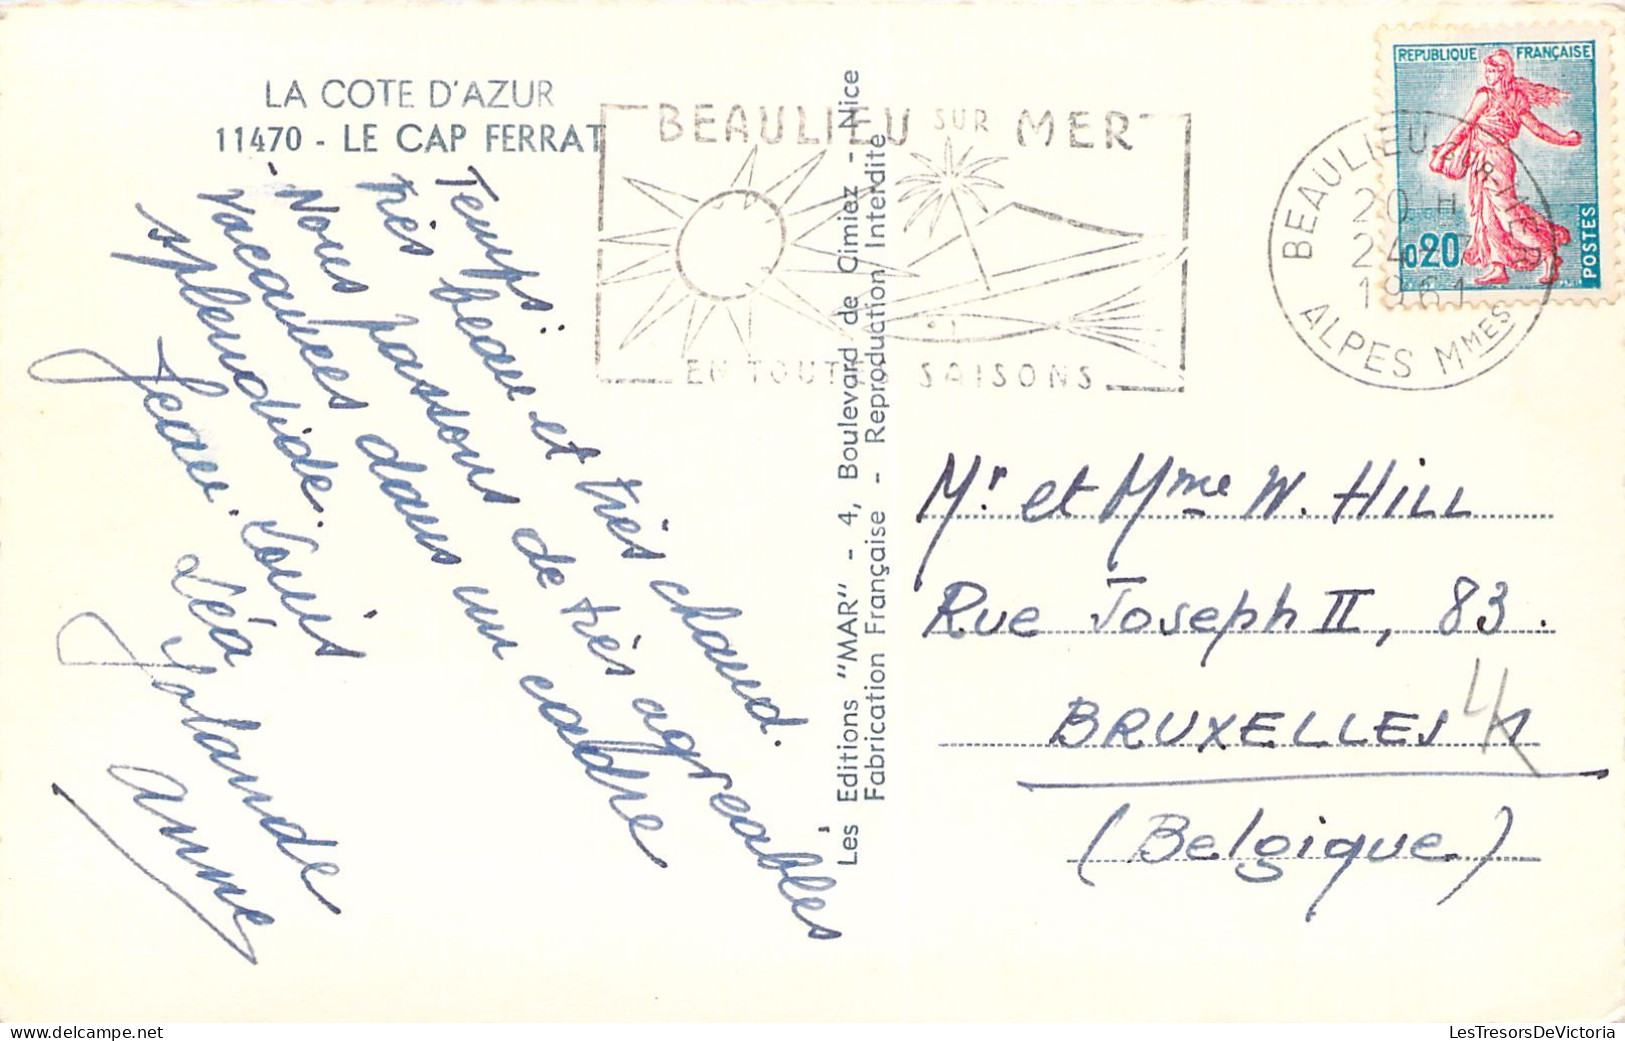 LA COTE D'AZUR
11470 - LE CAP FERRAT
Temps:
très beau et très chaud.
- Nous passons de très agréables
vacances dans un cadre
splendide.
Jean. Louis
Léa
Yolande
Anne
Les Editions "MAR" - 4, Boulevard de Cimiez - Nice
Fabrication Française - Reproduction Interdite
BEAULIEU SUR MER
EN TOUTES SAISONS
BEAULIEU-SUR-MER
20 H
24-7
1961
ALPES Mmes
REPUBLIQUE FRANÇAISE
0,20
POSTES
Mr et Mme W. HILL
Rue Joseph II, 83.
BRUXELLES 4
(Belgique)
LesTresorsDeVictoria